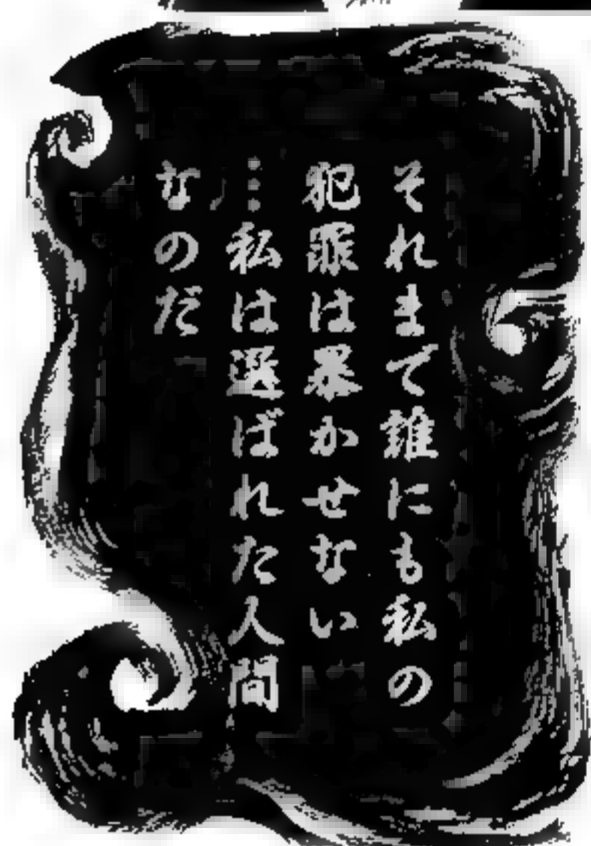 それまで誰にも私の
犯罪は暴かせない
…私は選ばれた人間
なのだ